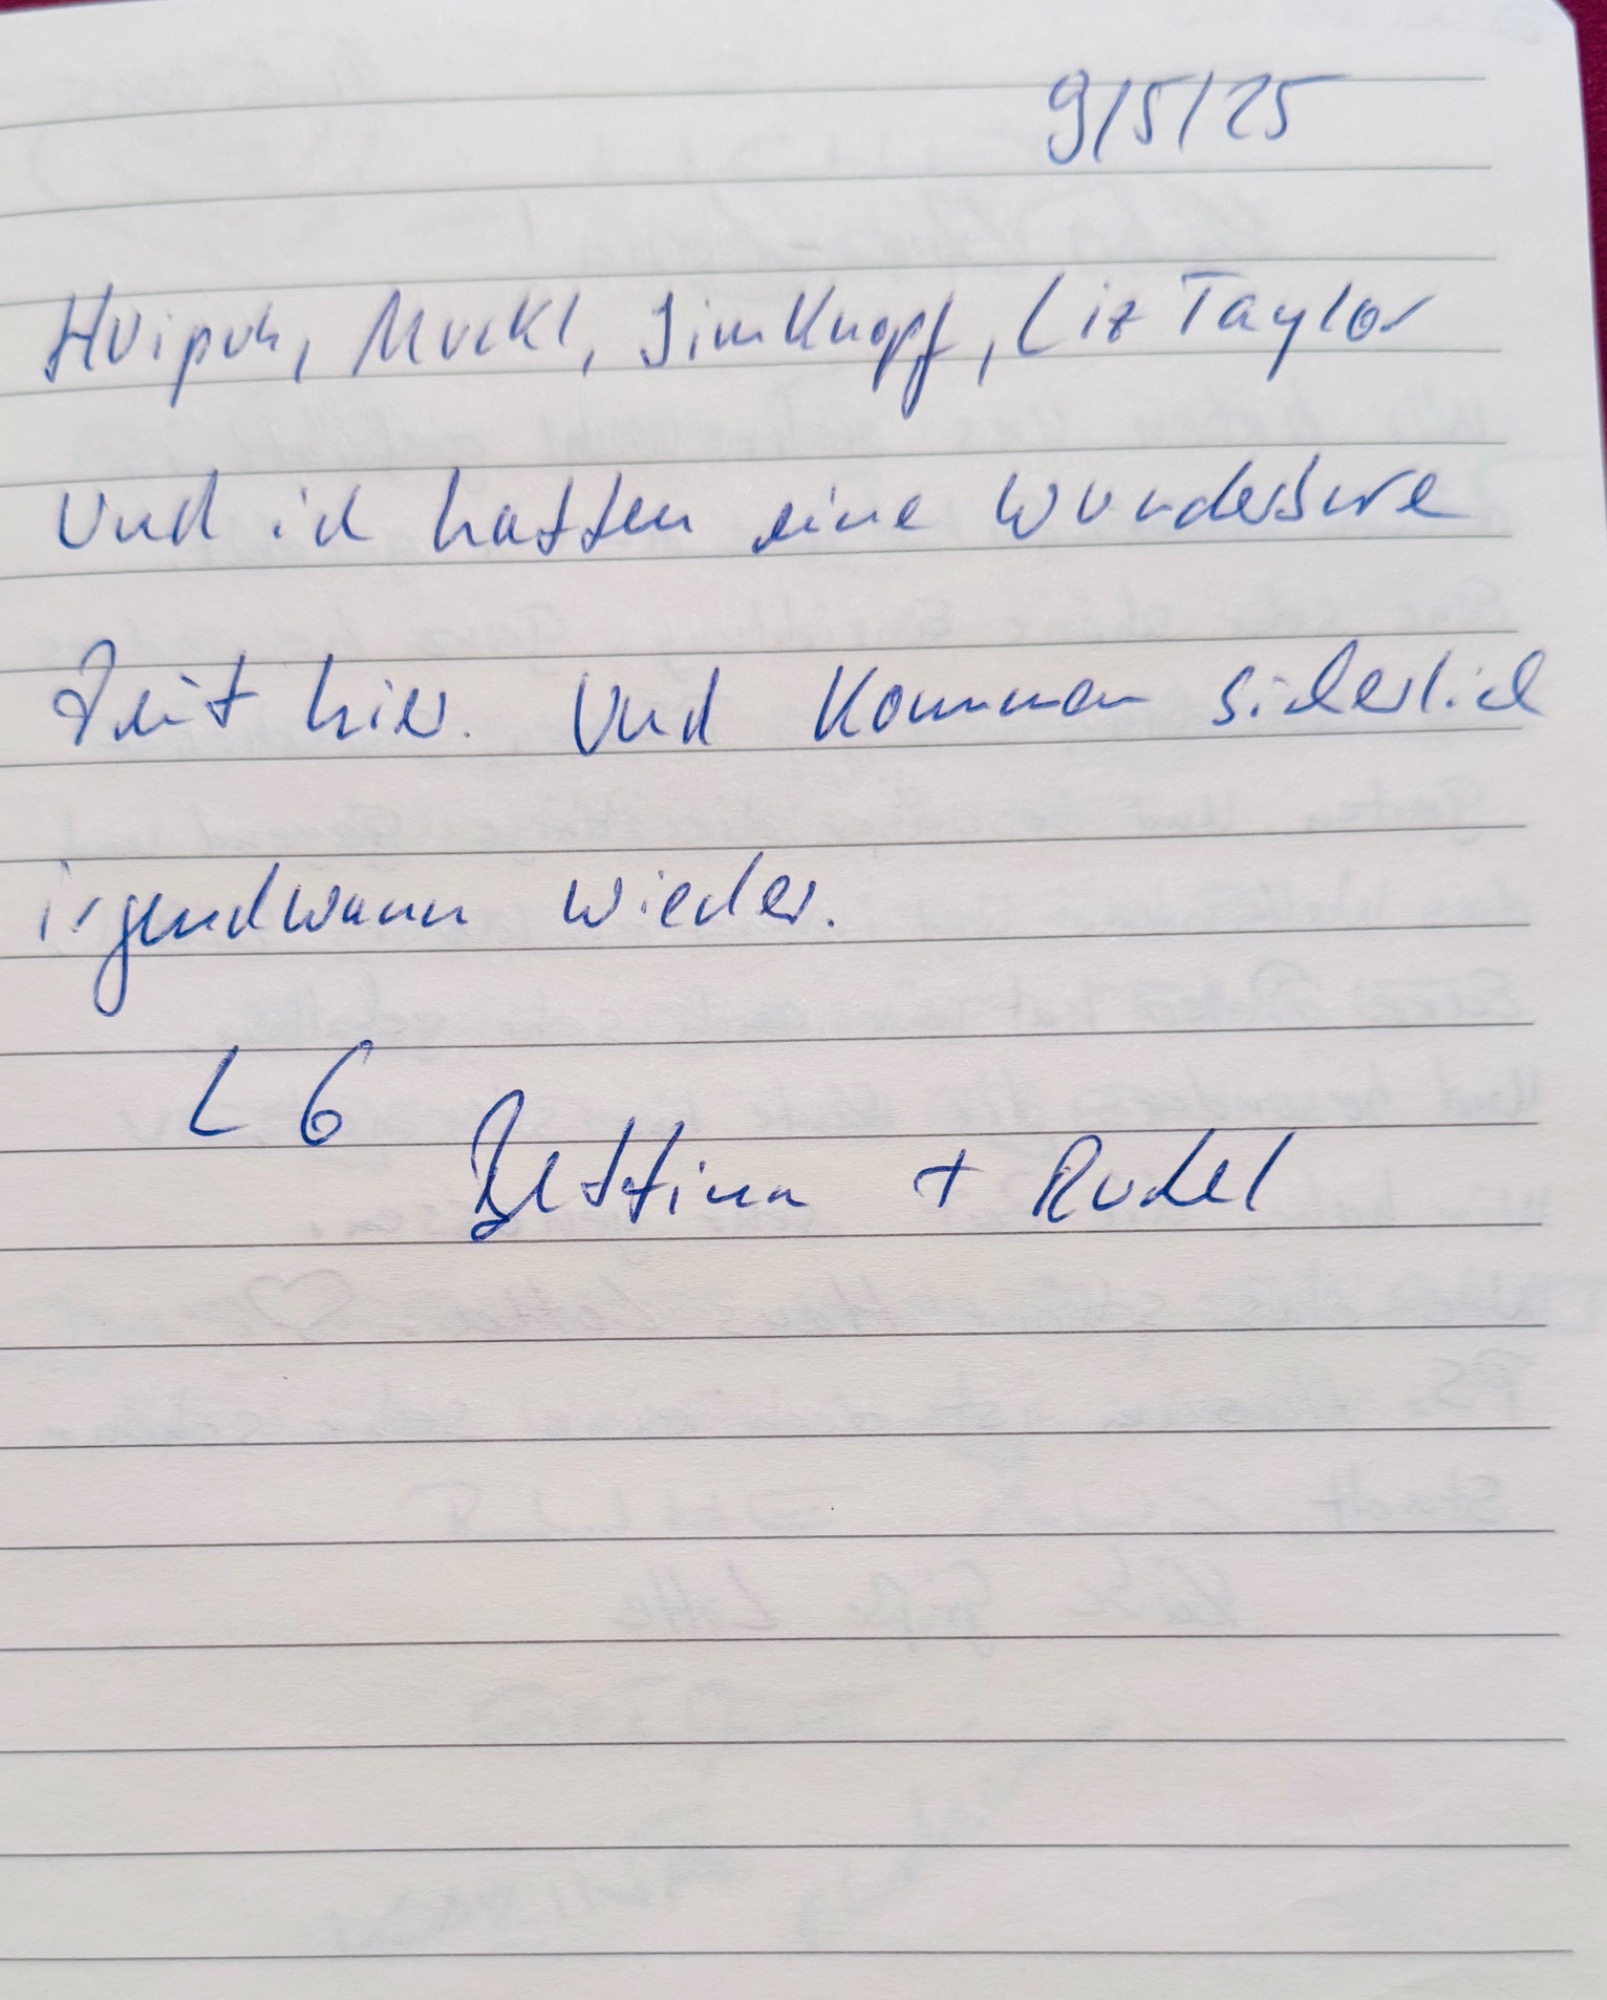 9/5/25
Huipuh, Muckl, Jim Knopf, Liz Taylor
Und ich hatten eine wunderbare
Zeit hier. Und kommen sicherlich
irgendwann wieder.
LG
Bettina + Rudel